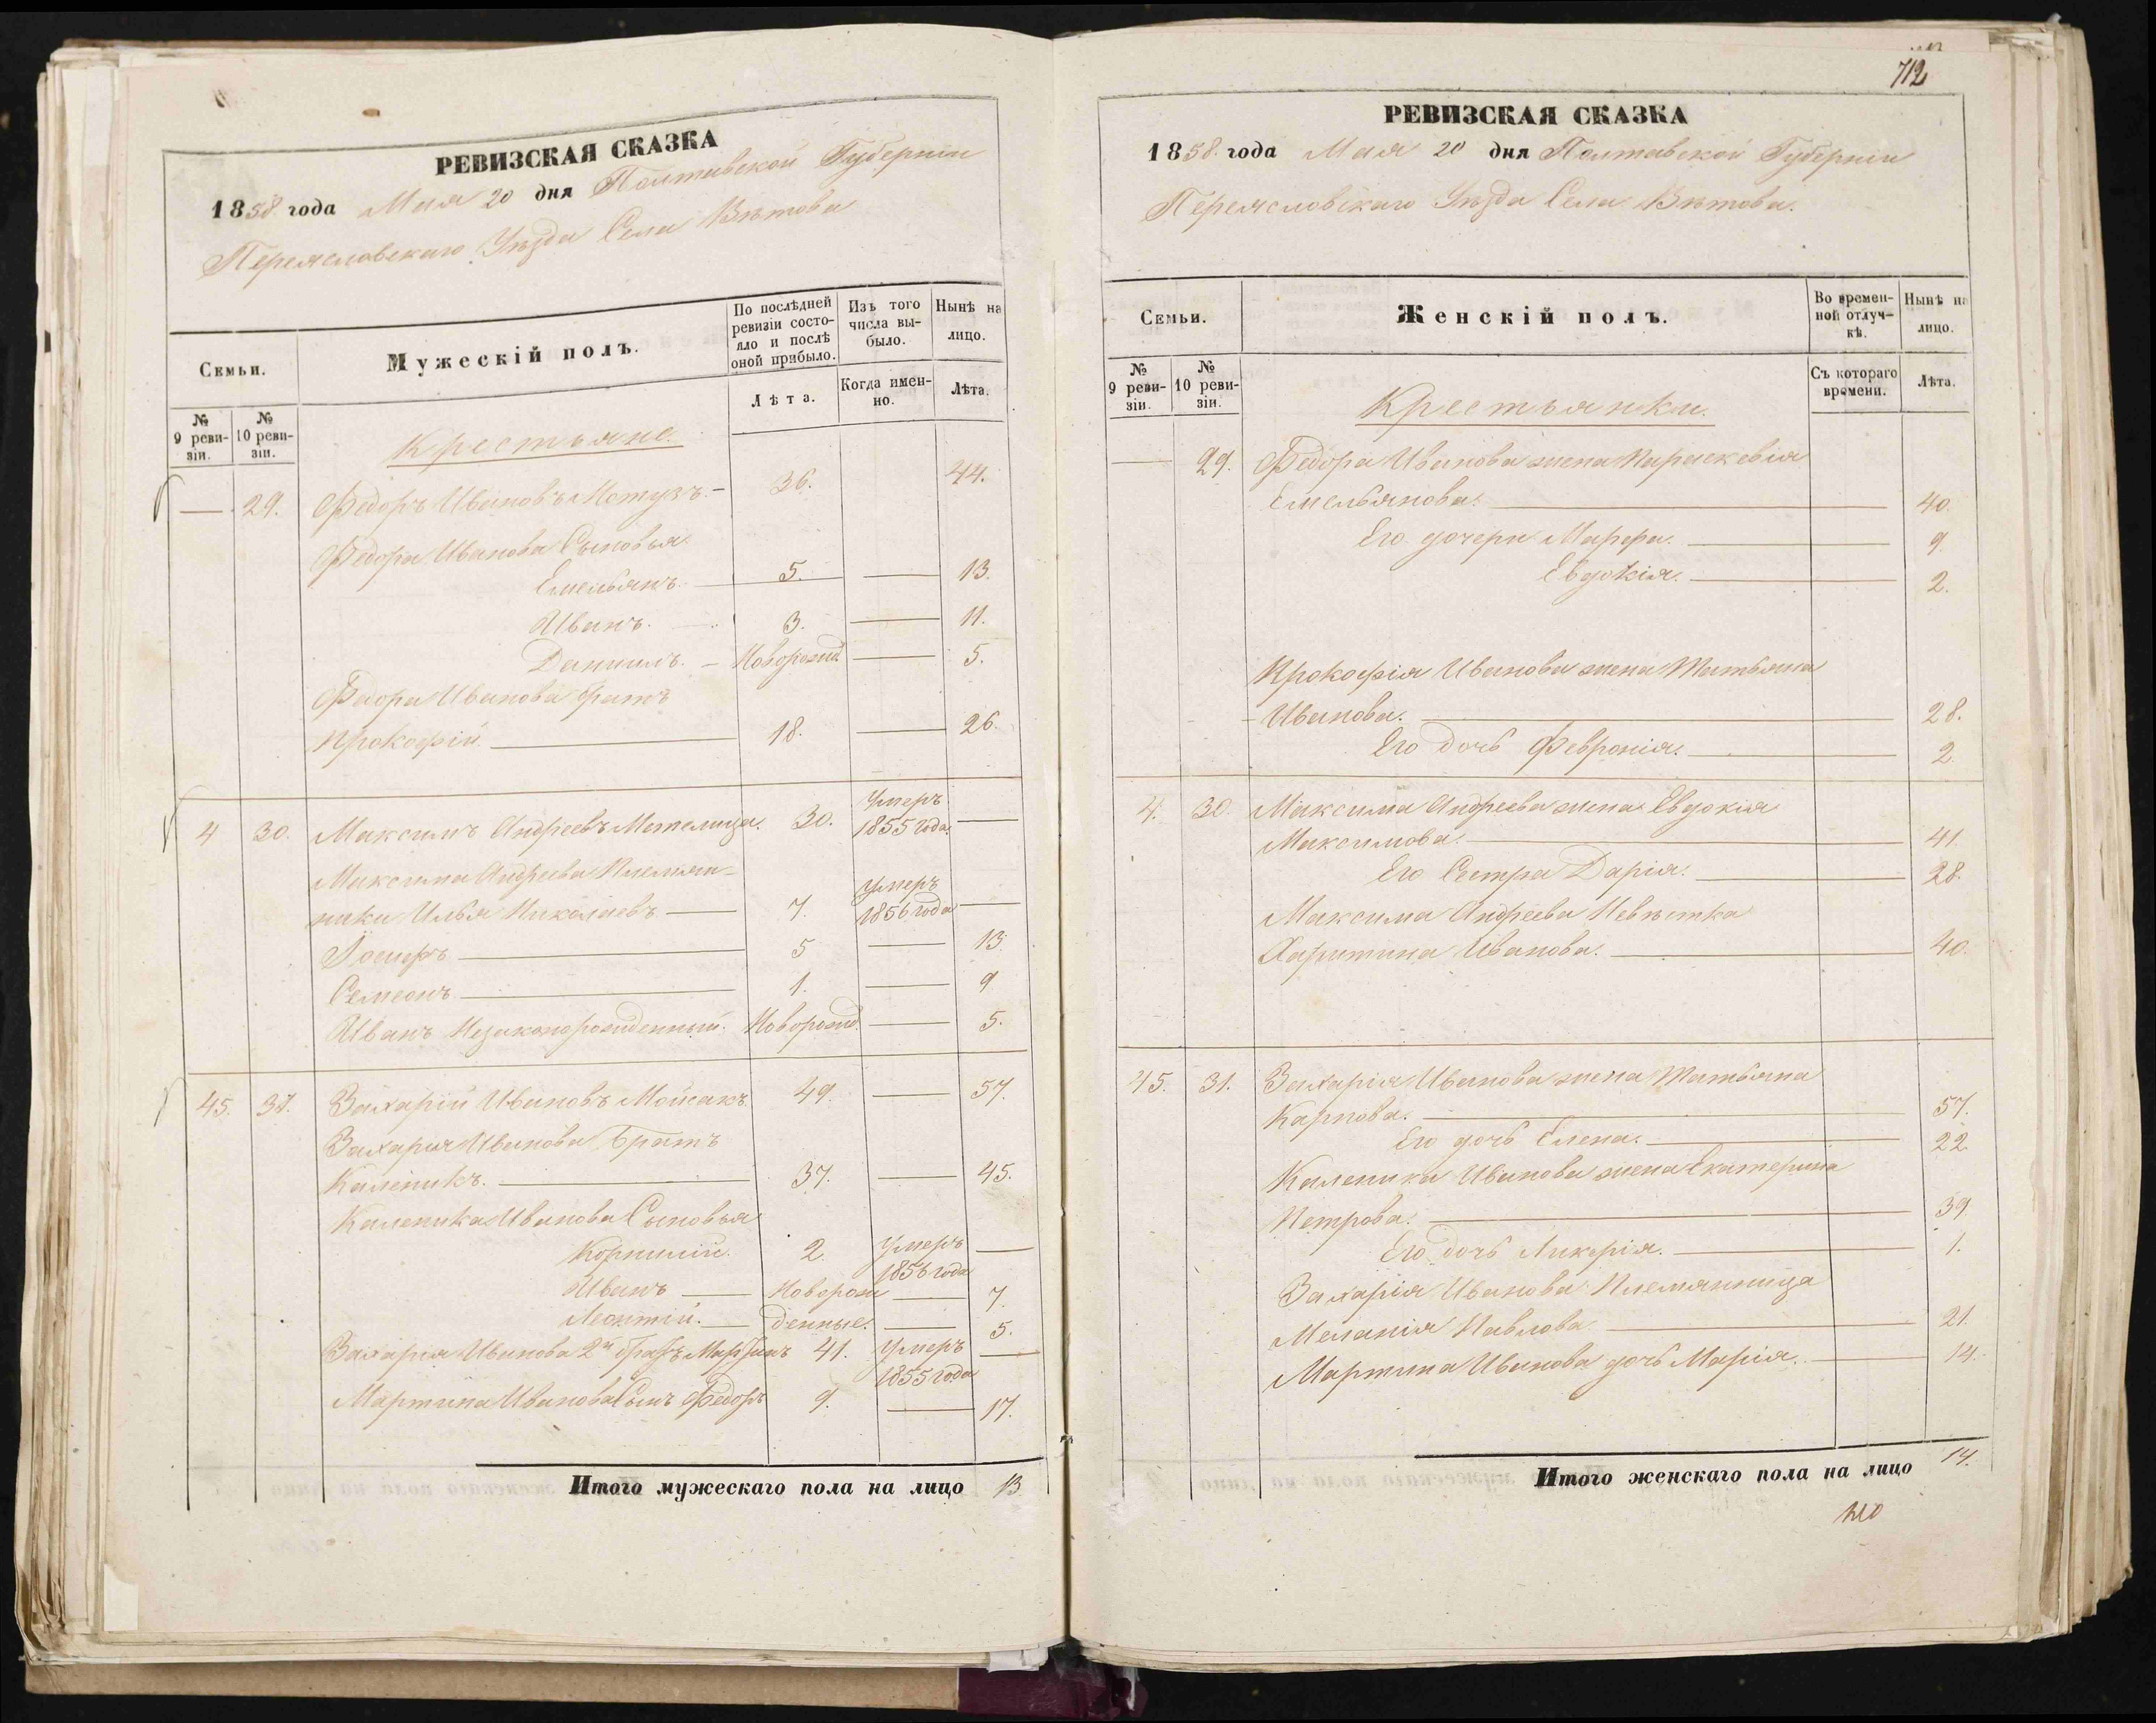 РЕВИЗСКАЯ СКАЗКА
1858 года Мая 20 дня Полтавской Губерніи
Переясловскаго Уѣзда Села Вѣтова
Семьи.
Мужескій полъ.
По послѣдней ревизіи состояло и послѣ оной прибыло.
Изъ того числа выбыло.
Нынѣ на лицо.
№ 9 ревизіи.
№ 10 ревизіи.
Лѣта.
Когда именно.
Лѣта.
Крестьяне.
— 29. Федоръ Ивановъ Мотузъ. — 36. 44.
Федора Иванова Сыновья
Емельянъ. — 5. — 13.
Иванъ. — 3. — 11.
Даниилъ. — Новорожд — 5.
Федора Иванова братъ
Прокофій — 18. — 26.
4 30. Максимъ Андреевъ Метелица. 30. Умеръ 1855 года. —
Максима Андреева Племян-
ники Илья Николаевъ — 7. Умеръ 1856 года —
Іосифъ — 5 — 13.
Семеонъ — 1. — 9
Иванъ Незаконорожденный. Новорожд. — 5.
45. 31. Захарій Ивановъ Мойсакъ. 49. — 57.
Захарія Иванова Братъ
Каленикъ. — 37. — 45.
Каленика Иванова Сыновья
Корнилій. 2. Умеръ 1856 года —
Иванъ — Новорож — 7
Леонтій. — денные. — 5.
Захарія Иванова 2й братъ Мартинъ 41. Умеръ 1855 года —
Мартина Иванова Сынъ Федоръ 9. — 17.
Итого мужескаго пола на лицо 13
712
РЕВИЗСКАЯ СКАЗКА
1858. года Мая 20 дня Полтавской Губерніи
Переясловскаго Уѣзда Села Вѣтова.
Семьи.
Женскій полъ.
Во временной отлучкѣ.
Нынѣ на лицо.
№ 9 ревизіи.
№ 10 ревизіи.
Съ котораго времени.
Лѣта.
Крестьянки.
— 29. Федора Иванова жена Параскевія
Емельянова. — 40.
Его дочери Марфа. — 9.
Евдокія. — 2.
Прокофія Иванова жена Татьяна
Иванова. — 28.
Его дочь Февронія. — 2.
4. 30. Максима Андреева жена Евдокія
Максимова. — 41.
Его Сестра Дарія. — 28.
Максима Андреева Невѣстка
Харитина Иванова. — 40.
45. 31. Захарія Иванова жена Татьяна
Карпова. — 57.
Его дочь Елена. — 22
Каленика Иванова жена Екатерина
Петрова. — 39
Его дочь Ликерія. — 1.
Захарія Иванова Племянница
Меланія Павлова — 21
Мартина Иванова дочь Марія. — 14.
Итого женскаго пола на лицо 14.